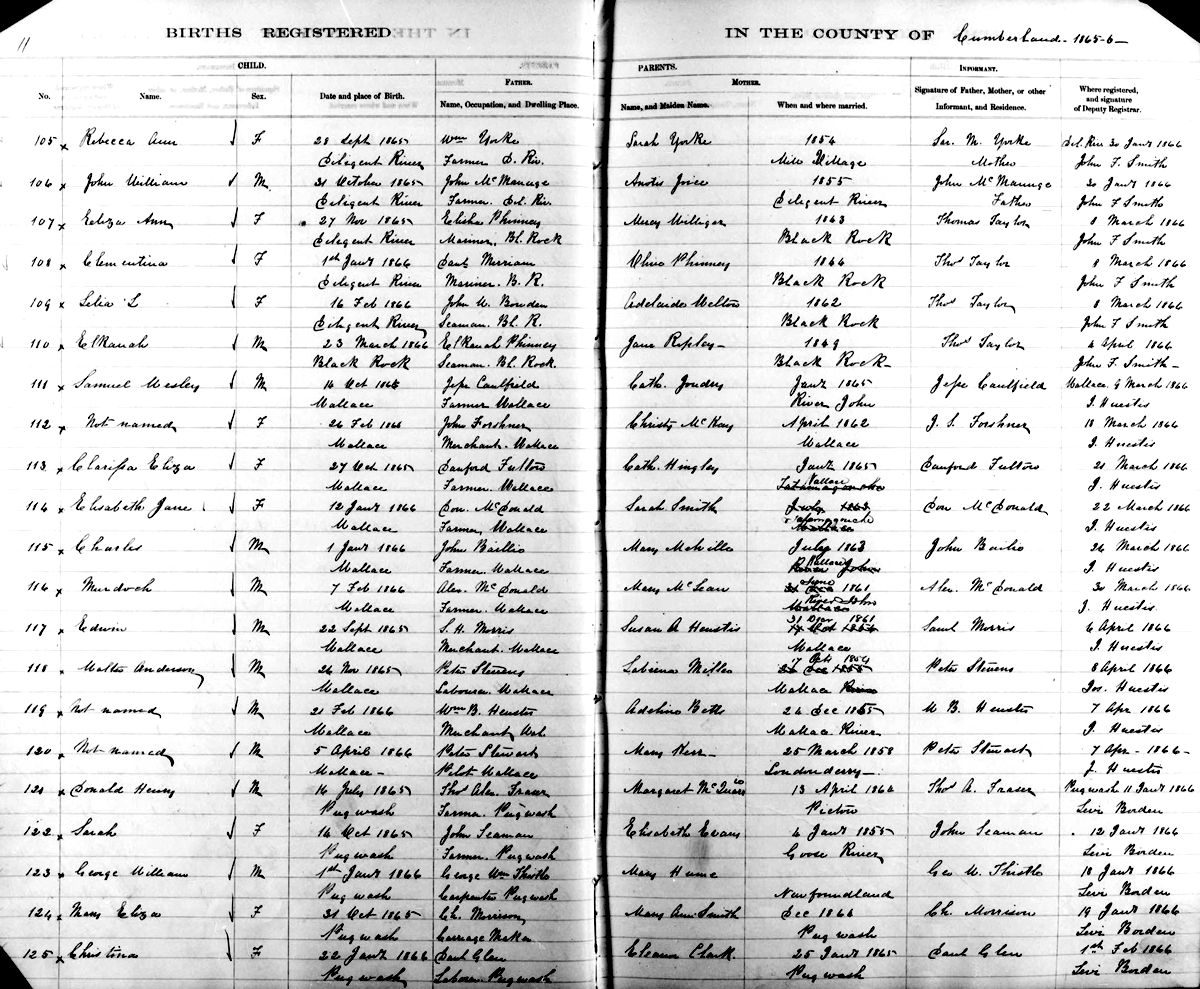 11
BIRTHS REGISTERED
IN THE COUNTY OF Cumberland - 1865-6 -
CHILD.
PARENTS.
Father.
Mother.
Informant.
No.
Name.
Sex.
Date and place of Birth.
Name, Occupation, and Dwelling Place.
Name, and Maiden Name.
When and where married.
Signature of Father, Mother, or other Informant, and Residence.
Where registered, and signature of Deputy Registrar.
105 x Rebecca Ann F 28 Sept 1865 Wm Yorke Sarah Yorke 1854 Sar. M. Yorke 30 Jany 1866
River Farmer D. Riv. Mill Village Mother John F. Smith
106 x John William M 31 October 1865 John McManuge 1855 John McManuge 20 Jany 1866
River Farmer River Father John F Smith
107 x Eliza Ann F 27 Nov 1865 Elisha Phinney Mercy 1863 Thomas Taylor 8 March 1866
River Mariner. Bl. Rock Black Rock John F Smith
108 x Clementina F 1st Jany 1866 Merriam Phinney 1844 Thos Taylor 8 March 1866
River Mariner. B. R. Black Rock John F Smith
109 x Lelia L F 16 Feb 1866 John Bowden Adelaide Welton 1862 Thos Taylor 8 March 1866
River Seaman. Bl. R. Black Rock John F Smith
110 x Elkanah M 23 March 1866 Elkanah Phinney Jane Ripley 1849 Thos Taylor 4 April 1866
Black Rock Seaman. Bl. Rock. Black Rock - John F. Smith -
111 x Samuel Wesley M 14 Oct 1865 Jesse Caulfield Cath. Jany 1865 Jesse Caulfield Wallace. 9 March 1866
Wallace Farmer Wallace River John J. Huestis
112 x Not named F 26 Feb John Forshner Christy McKay April 1862 J. S. Forshner 18 March 1866
Wallace Merchant. Wallace Wallace J. Huestis
113 x Clarissa Eliza F 27 Oct 1865 Danford Fulton Cath. Hingley Jany 1865 Danford Fulton 21 March 1866
Wallace Farmer. Wallace Wallace Tatamagouche J. Huestis
114 x Elisabeth Jane F 12 Jany 1866 Don. McDonald Sarah Smith July 1863 Don McDonald 22 March 1866
Wallace Farmer, Wallace Wallace J. Huestis
115 x Charles M 1 Jany 1866 John Baillie Mary Melville July 1863 John Bailie 26 March 1866
Wallace Farmer. Wallace River John J. Huestis
116 x Murdoch M 7 Feb 1866 Alex. McDonald Mary McLean 1861 Alex. McDonald 30 March 1866
Wallace Farmer. Wallace River John Wallace J. Huestis
117 x Edwin M 22 Sept 1865 S. H. Morris Susan A Huestis 31 1861 Saml Morris 6 April 1866
Wallace Merchant Wallace Wallace J. Huestis
118 x Anderson M 26 Nov 1865 Peter Stevens 7 Oct 1854 Peter Stevens 8 April 1866
Wallace Labourer. Wallace Wallace River Jos. Huestis
119 x Not named M 21 Feb 1866 Wm B. Huestis Betts 24 Dec W B. Huestis 7 Apr 1866
Wallace Merchant Wallace River J. Huestis
120 x Not named M 5 April 1866 Peter Stewart Mary Kerr 25 March 1858 Peter Stewart 7 Apr - 1866 -
Wallace - Pilot Wallace Londonderry - J. Huestis
121 x Donald Henry M 16 July 1865 Thos Alex. Fraser Margaret 13 April 1864 Thos A. Fraser Pugwash 11 Jany 1866
Pugwash Farmer. Pugwash Pictou Levi Borden
122 x Sarah F 14 Oct 1865 John Seaman Elisabeth Evans 4 Jany 1855 John Seaman 12 Jany 1866
Pugwash Farmer. Pugwash Goose River Levi Borden
123 x George William M 1st Jany 1866 George Wm Thistle Mary Hume Geo W. Thistle 18 Jany 1866
Pugwash Carpenter Pugwash Newfoundland Levi Borden
124 x Mary Eliza F 31 Oct 1865 Ch. Morrison Mary Ann Smith Dec 1864 Ch. Morrison 19 Jany 1866
Pugwash Carriage Maker Pugwash Levi Borden
125 x Christina F 22 Jany 1866 Glen Eleanor Clark. 25 Jany 1865 Glen 1st Feb 1866
Pugwash Labourer. Pugwash Pugwash Levi Borden